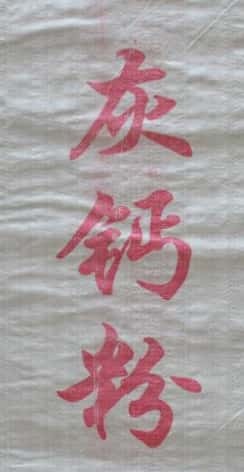 灰钙粉